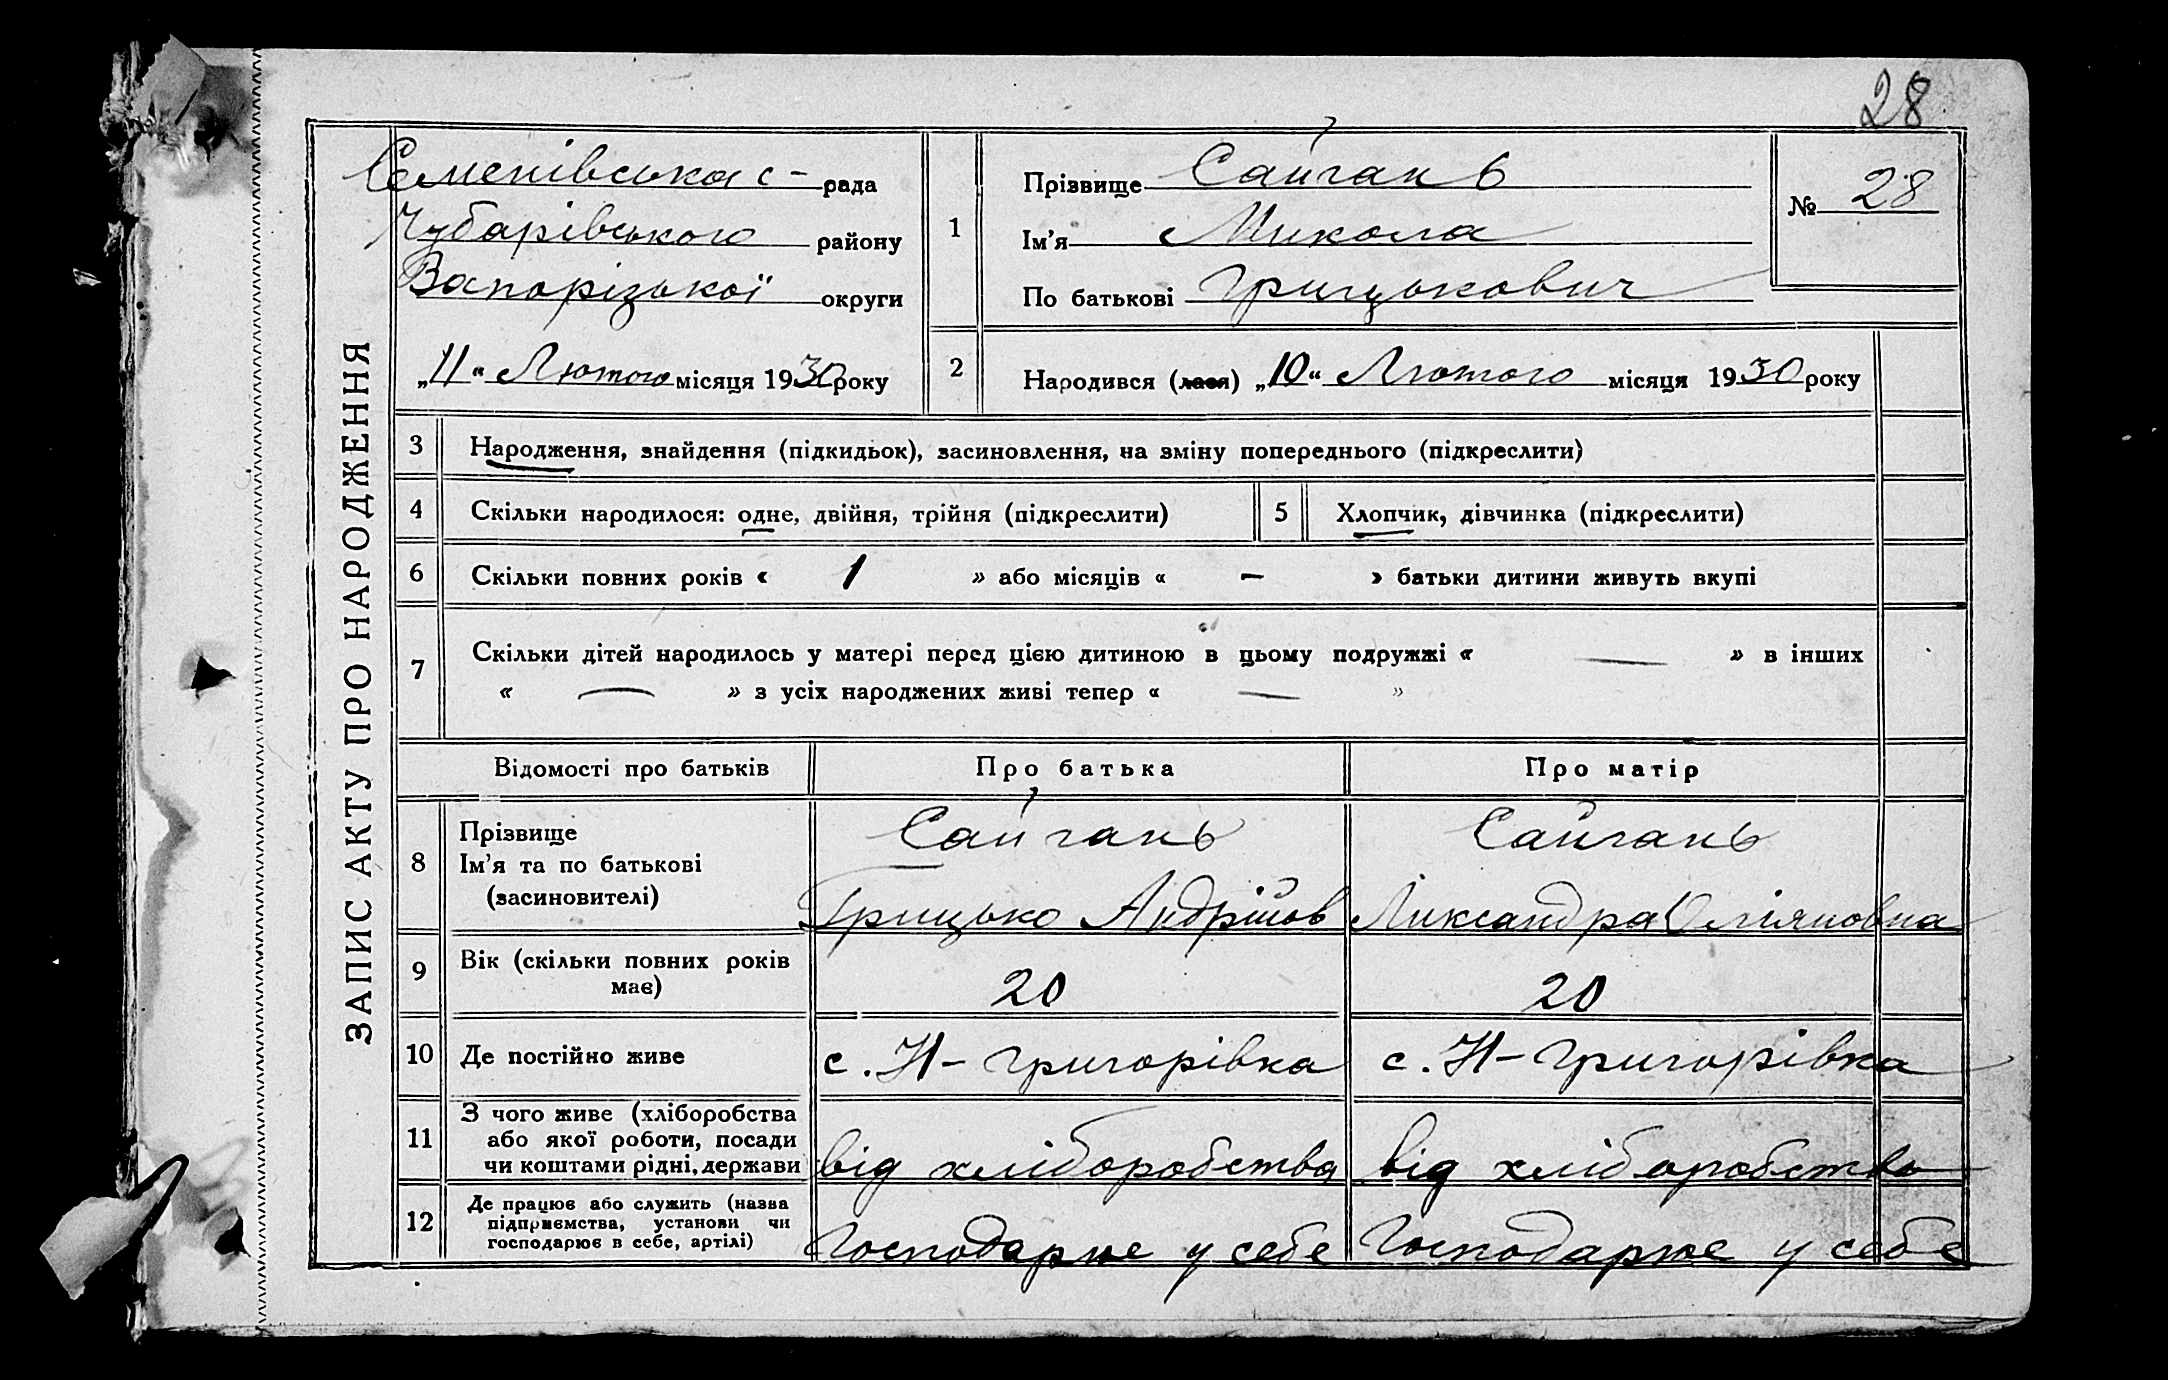 28
ЗАПИС АКТУ ПРО НАРОДЖЕННЯ
Семенівська с- рада
Чубарівського району
Запорізької округи
„11“ Лютого місяця 1930 року
1
Прізвище Сайгань
Ім’я Микола
По батькові Грицькович
№ 28
2
Народився (лася) „10“ Лютого місяця 1930 року
3 Народження, знайдення (підкидьок), засиновлення, на зміну попереднього (підкреслити)
4 Скільки народилося: одне, двійня, трійня (підкреслити) 5 Хлопчик, дівчинка (підкреслити)
6 Скільки повних років « 1 » або місяців « – » батьки дитини живуть вкупі
7 Скільки дітей народилось у матері перед цією дитиною в цьому подружжі « — » в інших
« — » з усіх народжених живі тепер « — »
Відомості про батьків Про батька Про матір
8 Прізвище
Ім’я та по батькові
(засиновителі)
Сайгань
Грицько Андріїов
Сайгань
Лиександра
9 Вік (скільки повних років
має)
20
20
10 Де постійно живе с. Н-Григорівка с. Н-Григорівка
11 З чого живе (хліборобства
або якої роботи, посади
чи коштами рідні, держави
від хліборобства
від хліборобства
12 Де працює або служить (назва
підприємства, установи чи
господарює в себе, артілі)
Господарює у себе
Господарює у себе